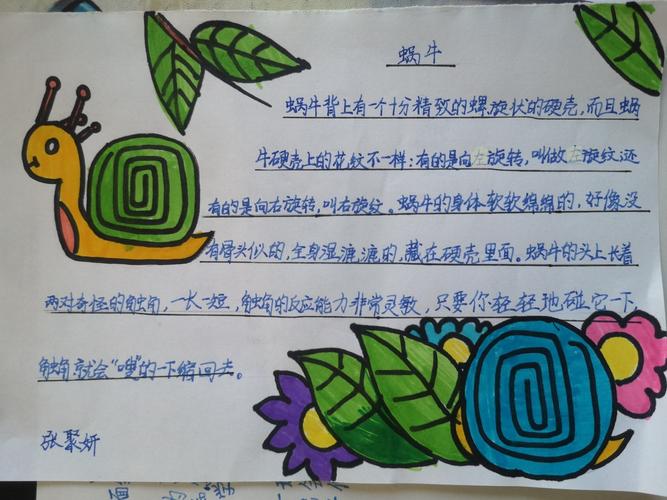 蜗牛
蜗牛背上有一个十分精致的螺旋状的硬壳,而且蜗
牛硬壳上的花纹不一样:有的是向左旋转,叫做左旋纹还
有的是向右旋转,叫右旋纹。蜗牛的身体软软绵绵的,好像没
有骨头似的,全身湿漉漉的,藏在硬壳里面。蜗牛的头上长着
两对奇怪的触角,一长一短,触角的反应能力非常灵敏,只要你轻轻地碰它一下,
触角就会“嗖”的一下缩回去。
张聚妍